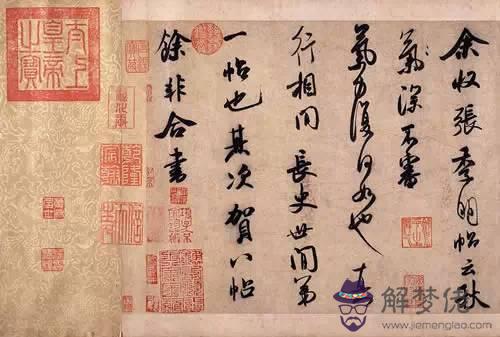 余收張季明帖云秋
氣深不審
氣力復何如也真
行相間長史世間第
一帖也其次賀八帖
餘非合書
太上
皇帝
之寶
解梦佬
www.jiemenglao.com